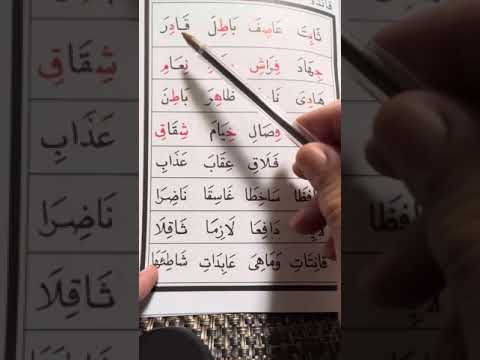 ثَابِتَ عَاصِفَ بَاطِلَ قَادِرَ
جِهَادَ فِرَاشِ نِعَامِ
هَادِىَ ظَاهِرَ بَاطِنَ
وِصَالِ خِيَامَ شِقَاقِ
فَلَاقِ عِقَابَ عَذَابِ
سَاخِطَا غَاسِقَا نَاضِرَا
دَافِعَا لَازِمَا ثَاقِلَا
قَانِتَاتِ وَمَاهِىَ عَابِدَاتِ شَاطِئَهَا